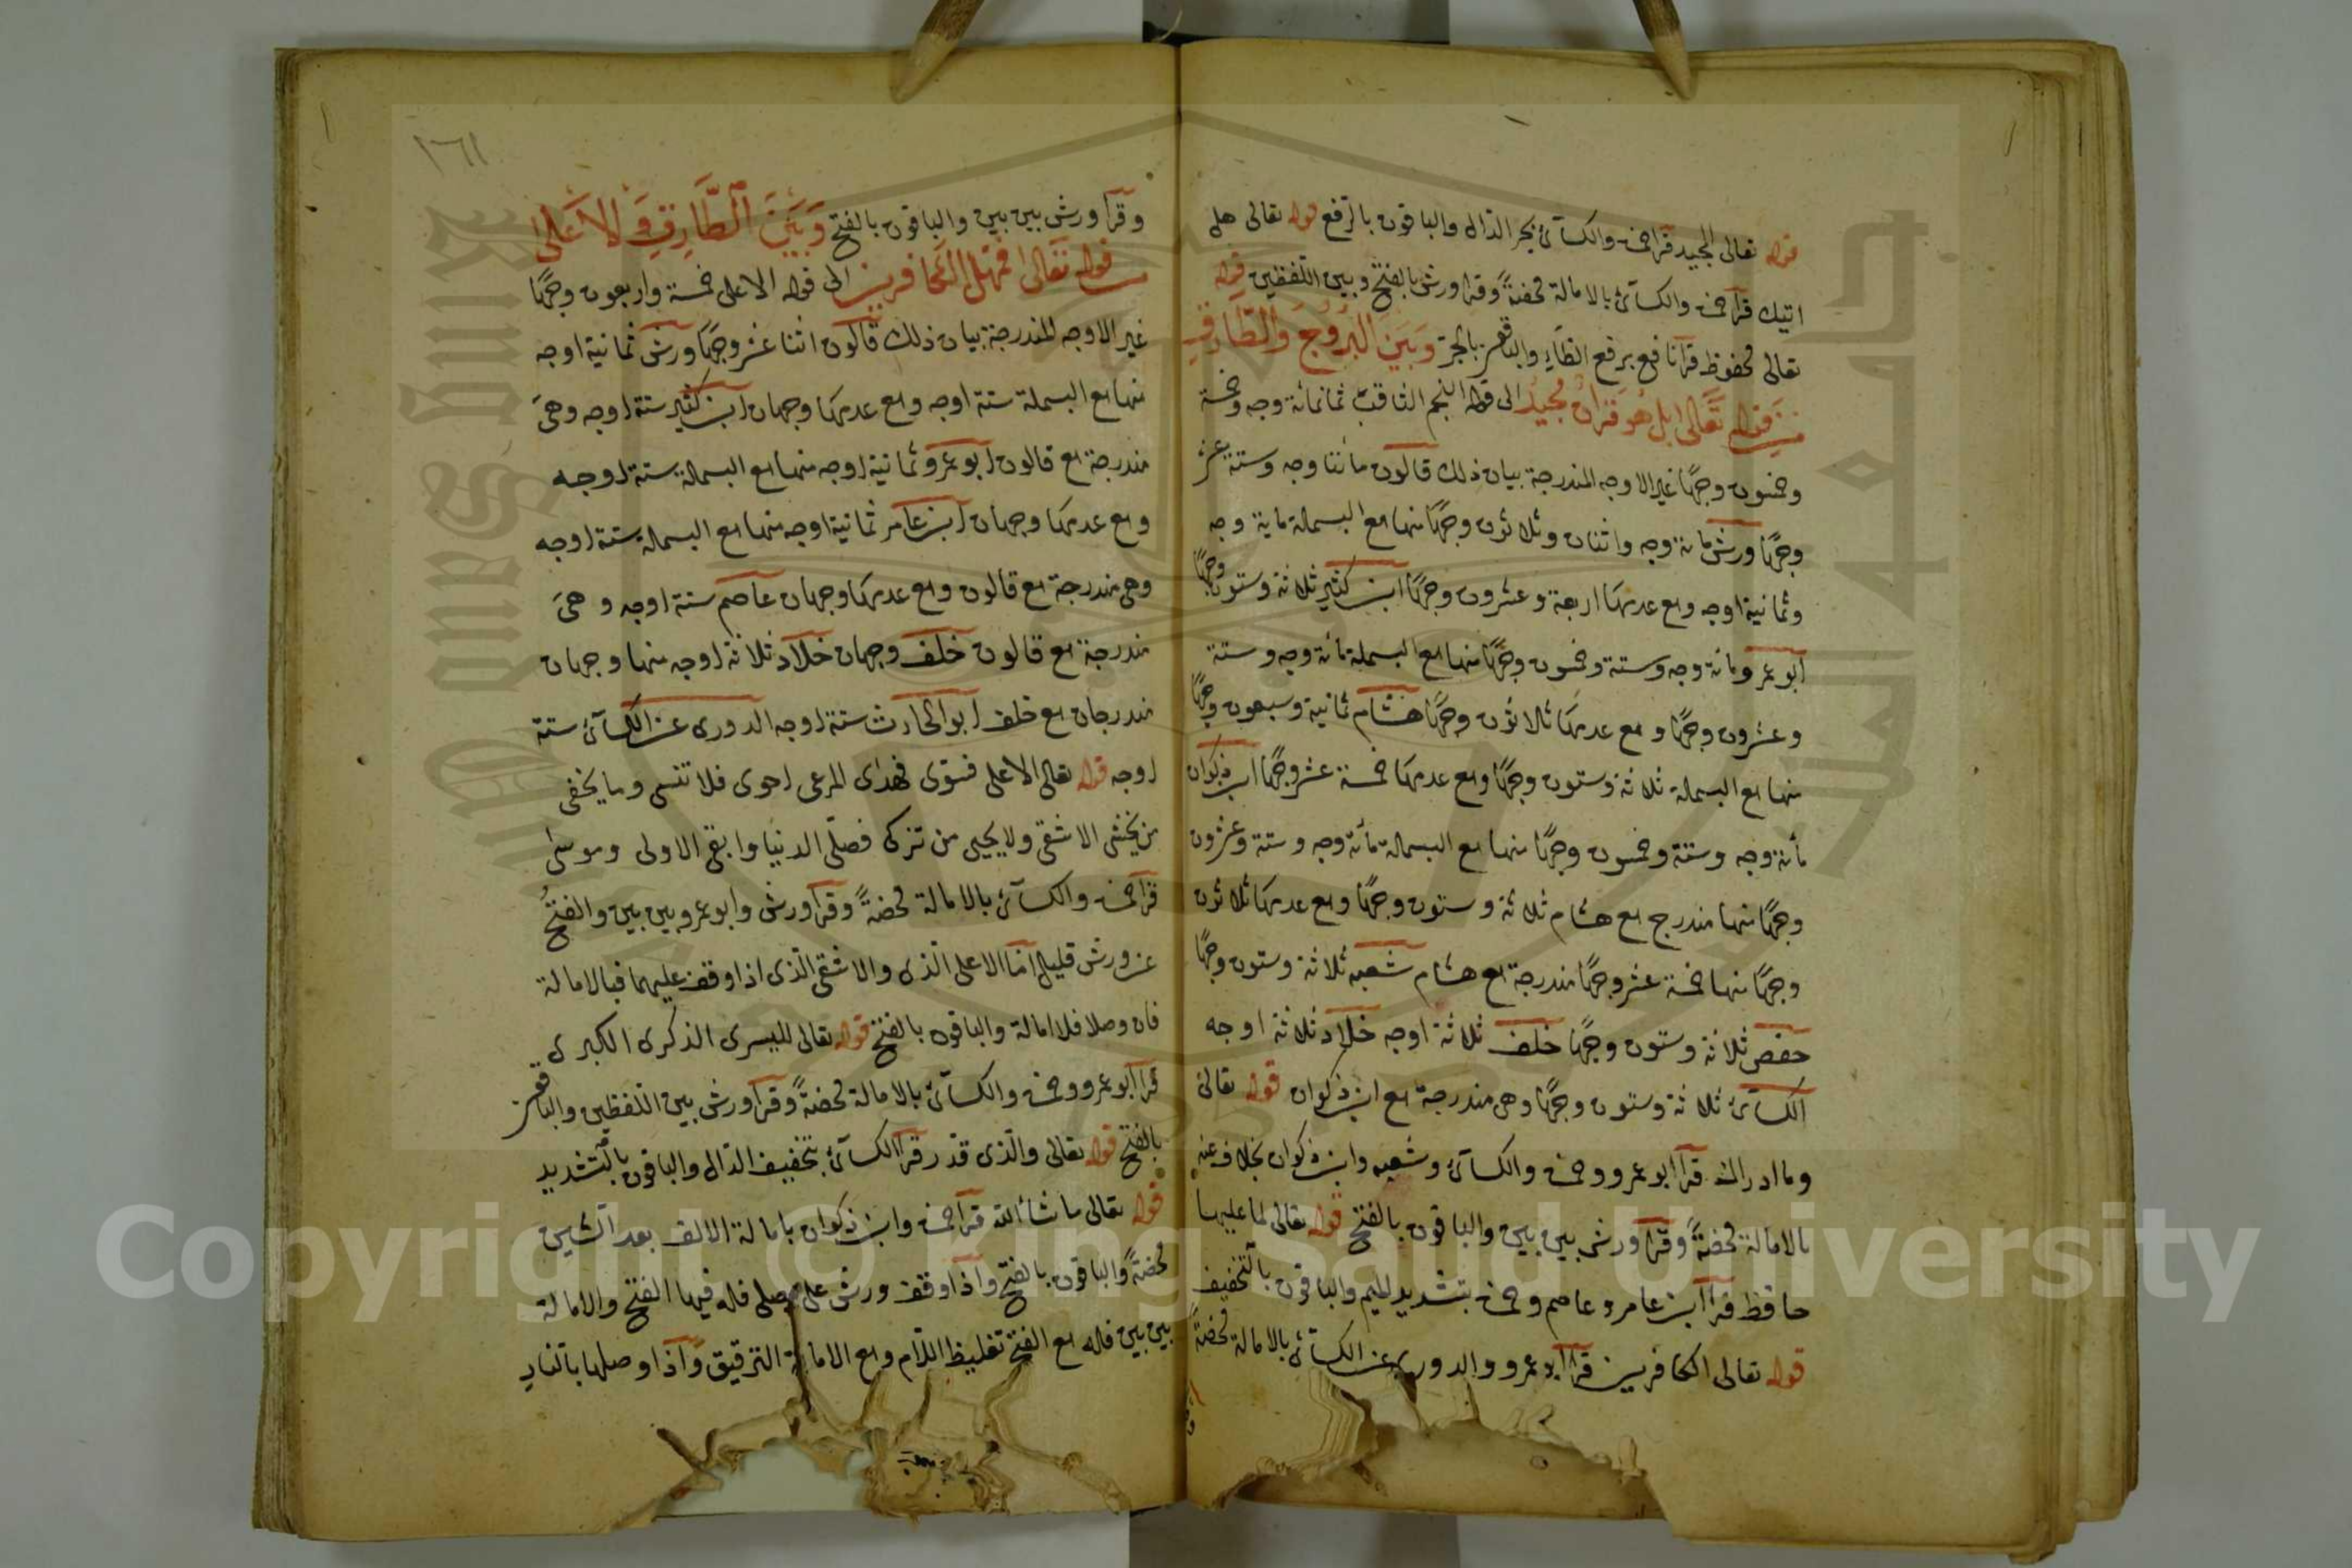 قوله تعالى المجيد قرا حمزة والكسآئى بجر الدال والباقون بالرفع قوله تعالى هل
اتيك قرا حمزة والكسآئى بالامالة محضةً وقرا ورش بالفتح وبين اللفظين قوله
تعالى محفوظ قرا نافع برفع الظاء والباقون بالجر وَبَيْنَ الْبُرُوجَ وَالطَّارِقِ
من قوله تعالى بل هو قران مجيد الى قوله النجم الثاقب ثمانمائة وجه وخمسة
وخمسون وجهًا غير الاوجه المندرجة بيان ذلك قالون مائتا وجه وستة عشر
وجهًا ورش مائة وجه واثنان وثلاثون وجهًا منها مع البسملة ماية وجه
وثمانية اوجه ومع عدمها اربعة وعشرون وجهًا ابن كثير ثلاثة وستون وجهًا
ابو عمرو مائة وجه وستة وخمسون وجهًا منها مع البسملة مائة وجه وستة
وعشرون وجهًا ومع عدمها ثلاثون وجهًا هشام ثمانية وسبعون وجهًا
منها مع البسملة ثلاثة وستون وجهًا ومع عدمها خمسة عشر وجهًا ابن ذكوان
مائة وجه وستة وخمسون وجهًا منها مع البسملة مائة وجه وستة وعشرون
وجهًا منها مندرج مع هشام ثلاثة وستون وجهًا ومع عدمها ثلاثون
وجهًا منها خمسة عشر وجهًا مندرجة مع هشام شعبه ثلاثة وستون وجهًا
حفص ثلاثة وستون وجهًا خلف ثلاثة اوجه خلاد ثلاثة اوجه
الكسآئى ثلاثة وستون وجهًا وهى مندرجة مع ابن ذكوان قوله تعالى
وما ادراك قرا ابو عمرو وحمزة والكسآئى وشعبه وابن ذكوان بخلاف عنه
بالامالة محضةً وقرا ورش بين بين والباقون بالفتح قوله تعالى لما عليها
حافظ قرا ابن عامر وعاصم وحمزة بتشديد الميم والباقون بالتخفيف
قوله تعالى الكافرين قرا ابو عمرو والدورى عن الكسآئى بالامالة محضةً
١٦١
وقرا ورش بين بين والباقون بالفتح وَبَيْنَ الطَّارِقِ وَالاَعْلى
من قوله تعالى فمهل الكافرين الى قوله الاعلى خمسة واربعون وجهًا
غير الاوجه المندرجة بيان ذلك قالون اثنا عشر وجهًا ورش ثمانية اوجه
منها مع البسملة ستة اوجه ومع عدمها وجهان ابن كثير ستة اوجه وهىَ
مندرجة مع قالون ابو عمرو ثمانية اوجه منها مع البسملة ستة اوجه
ومع عدمها وجهان ابن عامر ثمانية اوجه منها مع البسملة ستة اوجه
وهى مندرجة مع قالون ومع عدمها وجهان عاصم ستة اوجه وهىَ
مندرجة مع قالون خلف وجهان خلاد ثلاثة اوجه منها وجهان
مندرجان مع خلف ابو الحارث ستة اوجه الدورى عن الكسآئى ستة
اوجه قوله تعالى الاعلى فسوى فهدى المرعى احوى فلا تنسى وما يخفى
من يخشى الاشقى ولا يحيى من تزكى فصلّى الدنيا وابقى الاولى وموسى
قرا حمزة والكسآئى بالامالة محضةً وقرا ورش وابو عمرو بين بين والفتحُ
عن ورش قليل اما الاعلى الّذى والاشقى الّذى اذا وقف عليهما فبالامالة
فان وصلا فلا امالة والباقون بالفتح قوله تعالى لليسرى الذكرى الكبرى
قرا ابو عمرو وحمزة والكسآئى بالامالة محضةً وقرا ورش بين اللفظين والباقون
بالفتح قوله تعالى والّذى قدّر قرا الكسآئى بتخفيف الدال والباقون بالتّشديد
قوله تعالى ما شاء الله قرا حمزة وابن ذكوان بامالة الالف بعد الشين
محضةً والباقون بالفتح واذا وقف ورش على يصلى فله فيها الفتح والامالة
بين بين فله مع الفتح تغليظ اللّام ومع الامالة الترقيق واذا وصلها بالنار
Copyright © King Saud University
King Saud University
جامعة الملك سعود